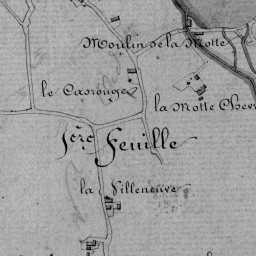 Moulin de la Motte
le Carouge
la Motte Chev
1ère Feuille
la Villeneuve